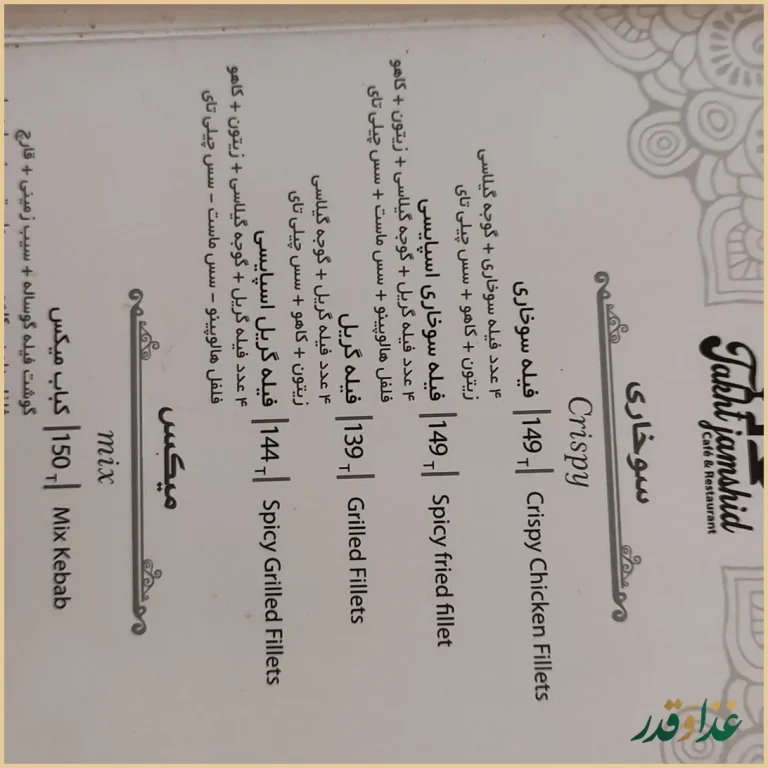 Takht jamshid
Café & Restaurant
سوخاری
Crispy
فیله سوخاری |149 T| Crispy Chicken Fillets
۴ عدد فیله سوخاری + گوجه گیلاسی
زیتون + کاهو + سس چیلی تای
فیله سوخاری اسپایسی |149 T| Spicy fried fillet
۴ عدد فیله گریل + گوجه گیلاسی + زیتون + کاهو
فلفل هالوپینو + سس ماست + سس چیلی تای
فیله گریل |139 T| Grilled Fillets
۴ عدد فیله گریل + گوجه گیلاسی
زیتون + کاهو + سس چیلی تای
فیله گریل اسپایسی |144 T| Spicy Grilled Fillets
۴ عدد فیله گریل + گوجه گیلاسی + زیتون + کاهو
فلفل هالوپینو - سس ماست - سس چیلی تای
میکس
mix
کباب میکس |150 T| Mix Kebab
گوشت فیله گوساله + سیب زمینی + قارچ
غذا و قدر